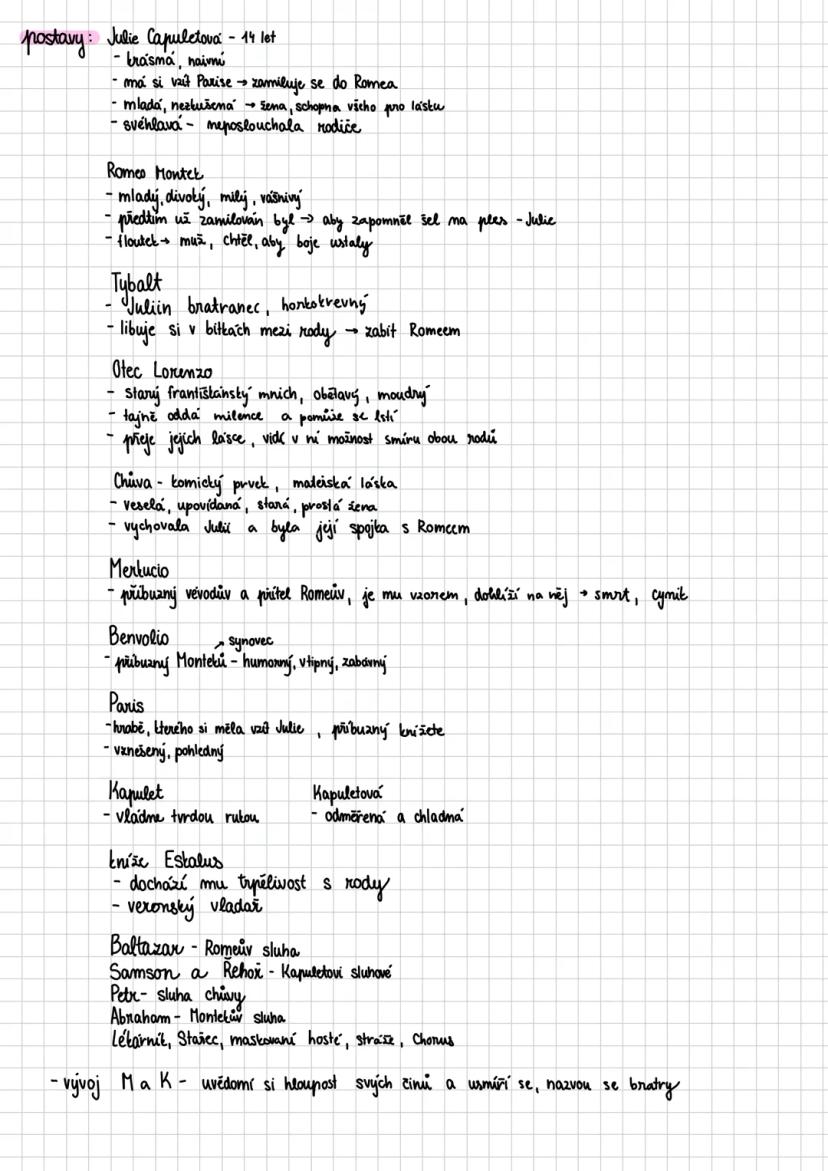 postavy: Julie Capuletová - 14 let
- krásná, naivní
- má si vzít Parise → zamiluje se do Romea
- mladá, nezkušená → žena, schopna všeho pro lásku
- svéhlavá - neposlouchala rodiče
Romeo Montek
- mladý, divoký, milý, vášnivý
- předtím už zamilován byl → aby zapomněl šel na ples - Julie
- floutek → muž, chtěl, aby boje ustaly
Tybalt
- Juliin bratranec, horkokrevný
- libuje si v bitkách mezi rody → zabit Romeem
Otec Lorenzo
- starý františkánský mnich, obětavý, moudrý
- tajně oddá milence a pomůže se lstí
- přeje jejich lásce, vidí v ní možnost smíru obou rodů
Chůva - komický prvek, mateřská láska
- veselá, upovídaná, stará, prostá žena
- vychovala Julii a byla její spojka s Romeem
Merkucio
- příbuzný vévodův a přítel Romeův, je mu vzorem, dohlíží na něj → smrt, cynik
Benvolio
↗ synovec
- příbuzný Monteků - humorný, vtipný, zábavný
Paris
- hrabě, kterého si měla vzít Julie, příbuzný knížete
- vznešený, pohledný
Kapulet Kapuletová
- vládne tvrdou rukou - odměřená a chladná
kníže Eskalus
- dochází mu trpělivost s rody
- veronský vladař
Baltazar - Romeův sluha
Samson a Řehoř - Kapuletovi sluhové
Petr - sluha chůvy
Abraham - Montekův sluha
Lékárník, Stařec, maskovaní hosté, stráže, Chorus
- vývoj M a K - uvědomí si hloupost svých činů a usmíří se, nazvou se bratry